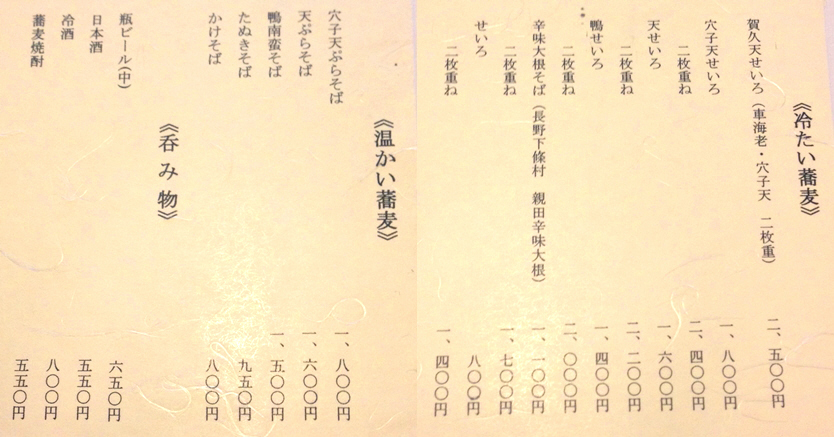 《冷たい蕎麦》
賀久天せいろ（車海老・穴子天　二枚重） 二、五〇〇円
穴子天せいろ 一、八〇〇円
二枚重ね 二、四〇〇円
天せいろ 一、六〇〇円
二枚重ね 二、二〇〇円
鴨せいろ 一、四〇〇円
二枚重ね 二、〇〇〇円
辛味大根そば（長野下條村　親田辛味大根） 一、一〇〇円
二枚重ね 一、七〇〇円
せいろ 八〇〇円
二枚重ね 一、四〇〇円
《温かい蕎麦》
穴子天ぷらそば 一、八〇〇円
天ぷらそば 一、六〇〇円
鴨南蛮そば 一、五〇〇円
たぬきそば 九五〇円
かけそば 八〇〇円
《呑み物》
瓶ビール(中) 六五〇円
日本酒 五五〇円
冷酒 八〇〇円
蕎麦焼酎 五五〇円